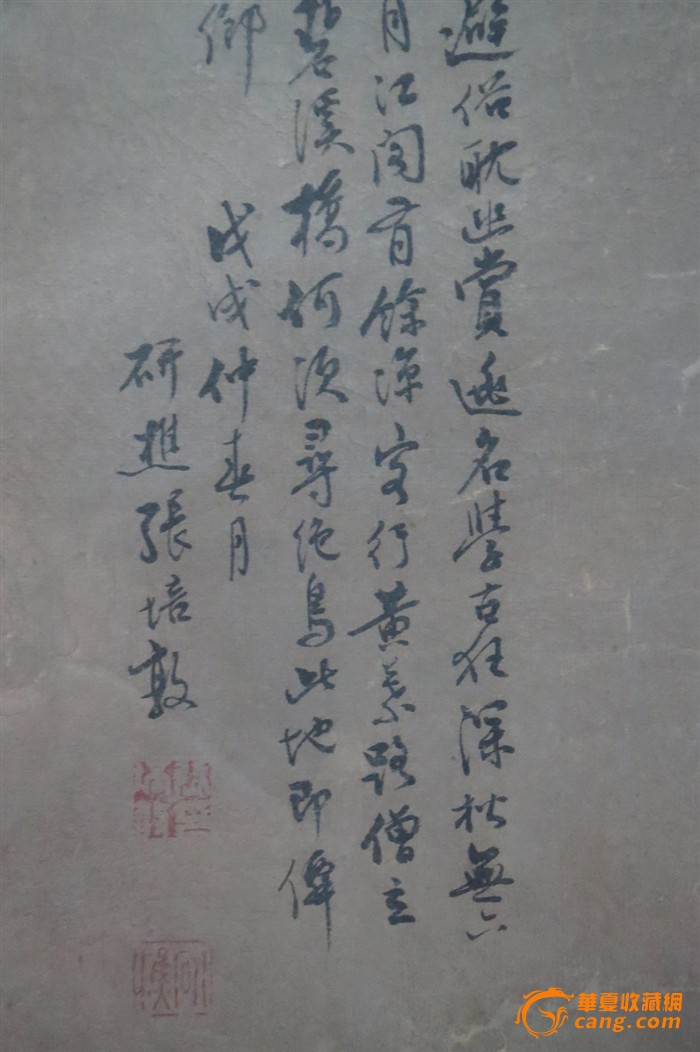 避俗耽幽賞逃名學古狂深林無六
月江閣有餘涼客行黃葉路僧立
碧溪橋何須尋絶島此地即僊
鄉 戊戌仲春月
研樵張培敦
華夏收藏網
cang.com